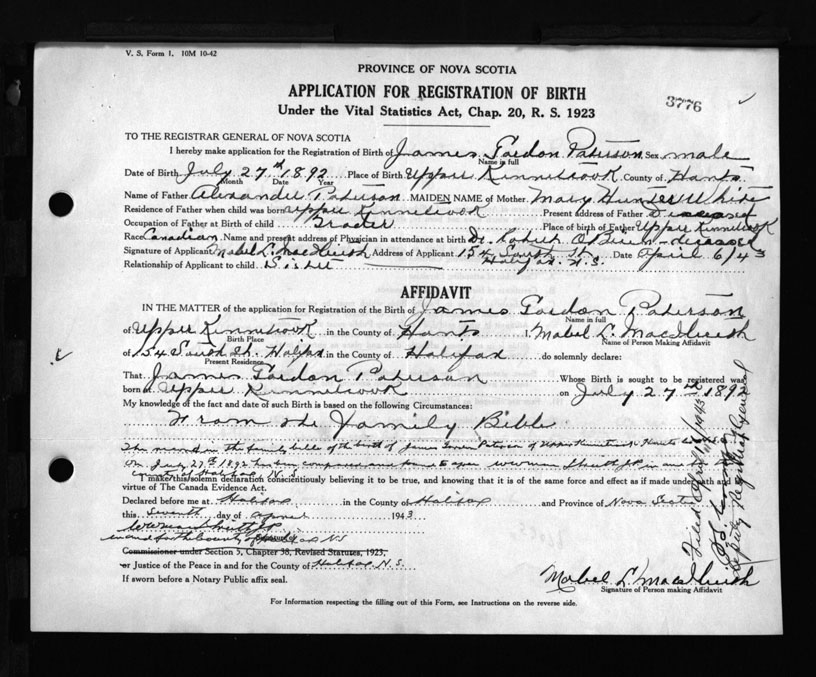 V. S. Form 1. 10M 10-42
PROVINCE OF NOVA SCOTIA
APPLICATION FOR REGISTRATION OF BIRTH
3776
Under the Vital Statistics Act, Chap. 20, R. S. 1923
TO THE REGISTRAR GENERAL OF NOVA SCOTIA
I hereby make application for the Registration of Birth of James Gordon Paterson Sex male
Name in full
Date of Birth July 27th 1892 Place of Birth Upper Kennetcook County of Hants
Month Date Year
Name of Father Alexander Paterson MAIDEN NAME of Mother Mary Hunter White
Residence of Father when child was born Upper Kennetcook Present address of Father Deceased
Occupation of Father at Birth of child Place of birth of Father Upper Kennetcook
Race Canadian Name and present address of Physician in attendance at birth Dr. Robert O'Brien - deceased
Signature of Applicant Mabel L. Address of Applicant 154 South St. Halifax N.S. Date April 6/43
Relationship of Applicant to child Sister
AFFIDAVIT
IN THE MATTER of the application for Registration of the Birth of James Gordon Paterson
Name in full
of Upper Kennetcook in the County of Hants I, Mabel L.
Birth Place Name of Person Making Affidavit
of 154 South St. Halifax in the County of Halifax do solemnly declare:
Present Residence
That James Gordon Paterson Whose Birth is sought to be registered was
born at Upper Kennetcook on July 27th 1892
My knowledge of the fact and date of such Birth is based on the following Circumstances:
From the Family Bible
The record in the family bible of the birth of James Gordon Paterson
On July 27th 1892 has been compared and
County of Halifax N.S.
I make this solemn declaration conscientiously believing it to be true, and knowing that it is of the same force and effect as if made under oath and
virtue of The Canada Evidence Act.
Declared before me at Halifax in the County of Halifax and Province of Nova Scotia
this seventh day of April 1943
in and for the County of Halifax NS
Commissioner under Section 5, Chapter 38, Revised Statutes, 1923,
or Justice of the Peace in and for the County of Halifax N.S.
If sworn before a Notary Public affix seal.
Mabel L.
Signature of Person making Affidavit
For Information respecting the filling out of this Form, see Instructions on the reverse side.
Filed April 1943
Deputy Registrar General